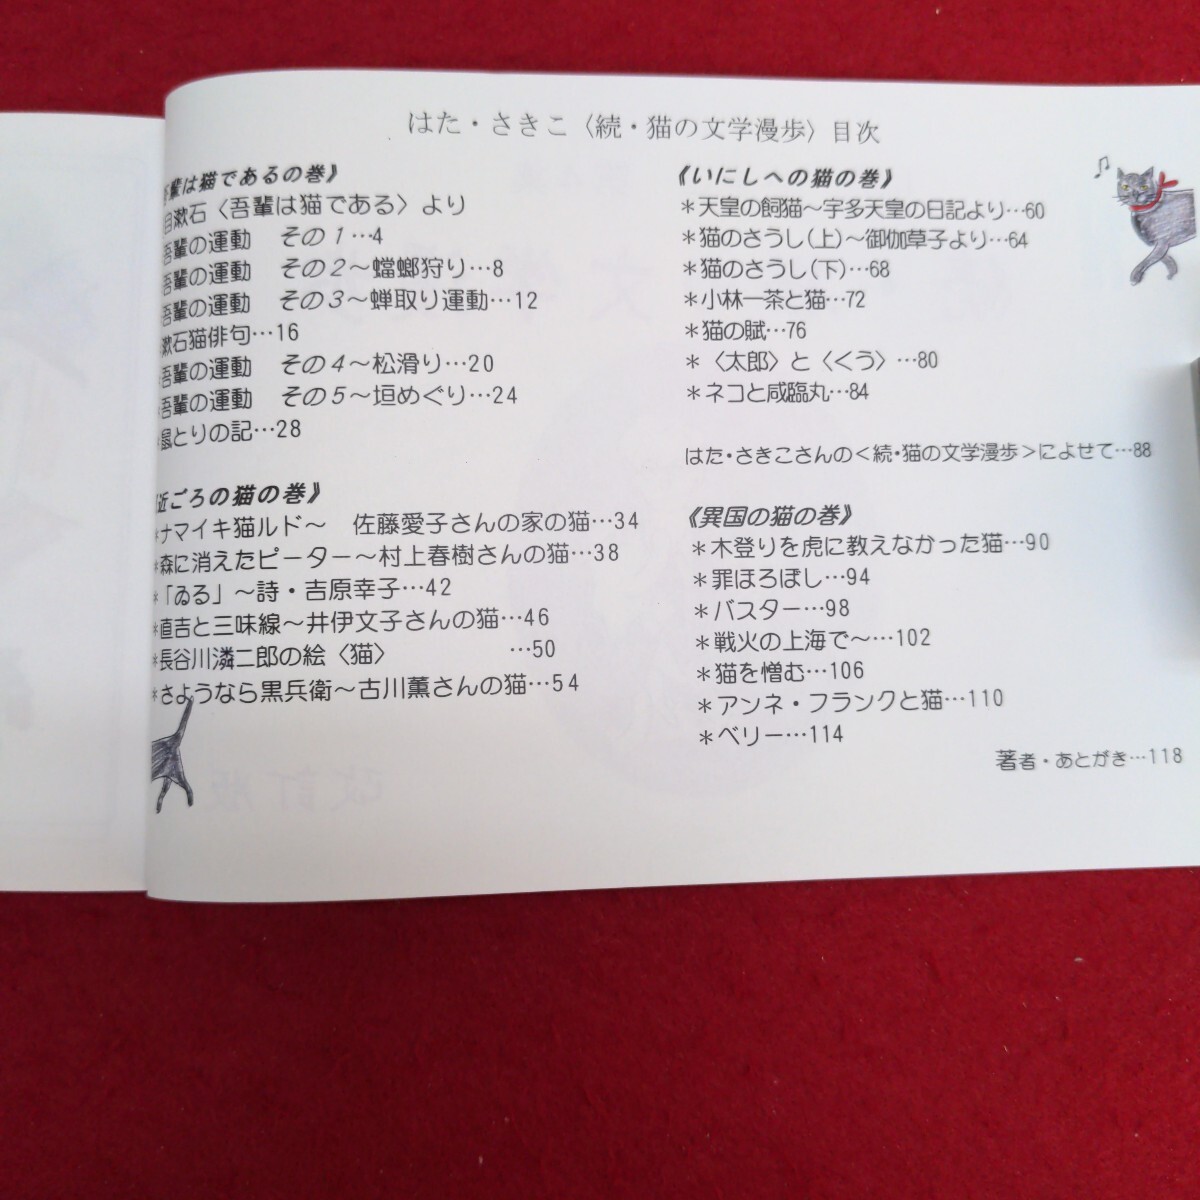 はた・さきこ〈続・猫の文学漫歩〉目次
輩は猫であるの巻》
目漱石〈吾輩は猫である〉より
吾輩の運動 その1…4
吾輩の運動 その2～蟷螂狩り…8
吾輩の運動 その3～蝉取り運動…12
漱石猫俳句…16
吾輩の運動 その4～松滑り…20
吾輩の運動 その5～垣めぐり…24
鼠とりの記…28
近ごろの猫の巻》
*ナマイキ猫ルド～ 佐藤愛子さんの家の猫…34
*森に消えたピーター～村上春樹さんの猫…38
*「ゐる」～詩・吉原幸子…42
*直吉と三味線～井伊文子さんの猫…46
*長谷川潾二郎の絵〈猫〉 …50
*さようなら黒兵衛～古川薫さんの猫…54
《いにしへの猫の巻》
*天皇の飼猫～宇多天皇の日記より…60
*猫のさうし(上)～御伽草子より…64
*猫のさうし(下)…68
*小林一茶と猫…72
*猫の賦…76
*〈太郎〉と〈くう〉…80
*ネコと咸臨丸…84
はた・さきこさんの<続・猫の文学漫歩>によせて…88
《異国の猫の巻》
*木登りを虎に教えなかった猫…90
*罪ほろぼし…94
*バスター…98
*戦火の上海で～…102
*猫を憎む…106
*アンネ・フランクと猫…110
*ベリー…114
著者・あとがき…118